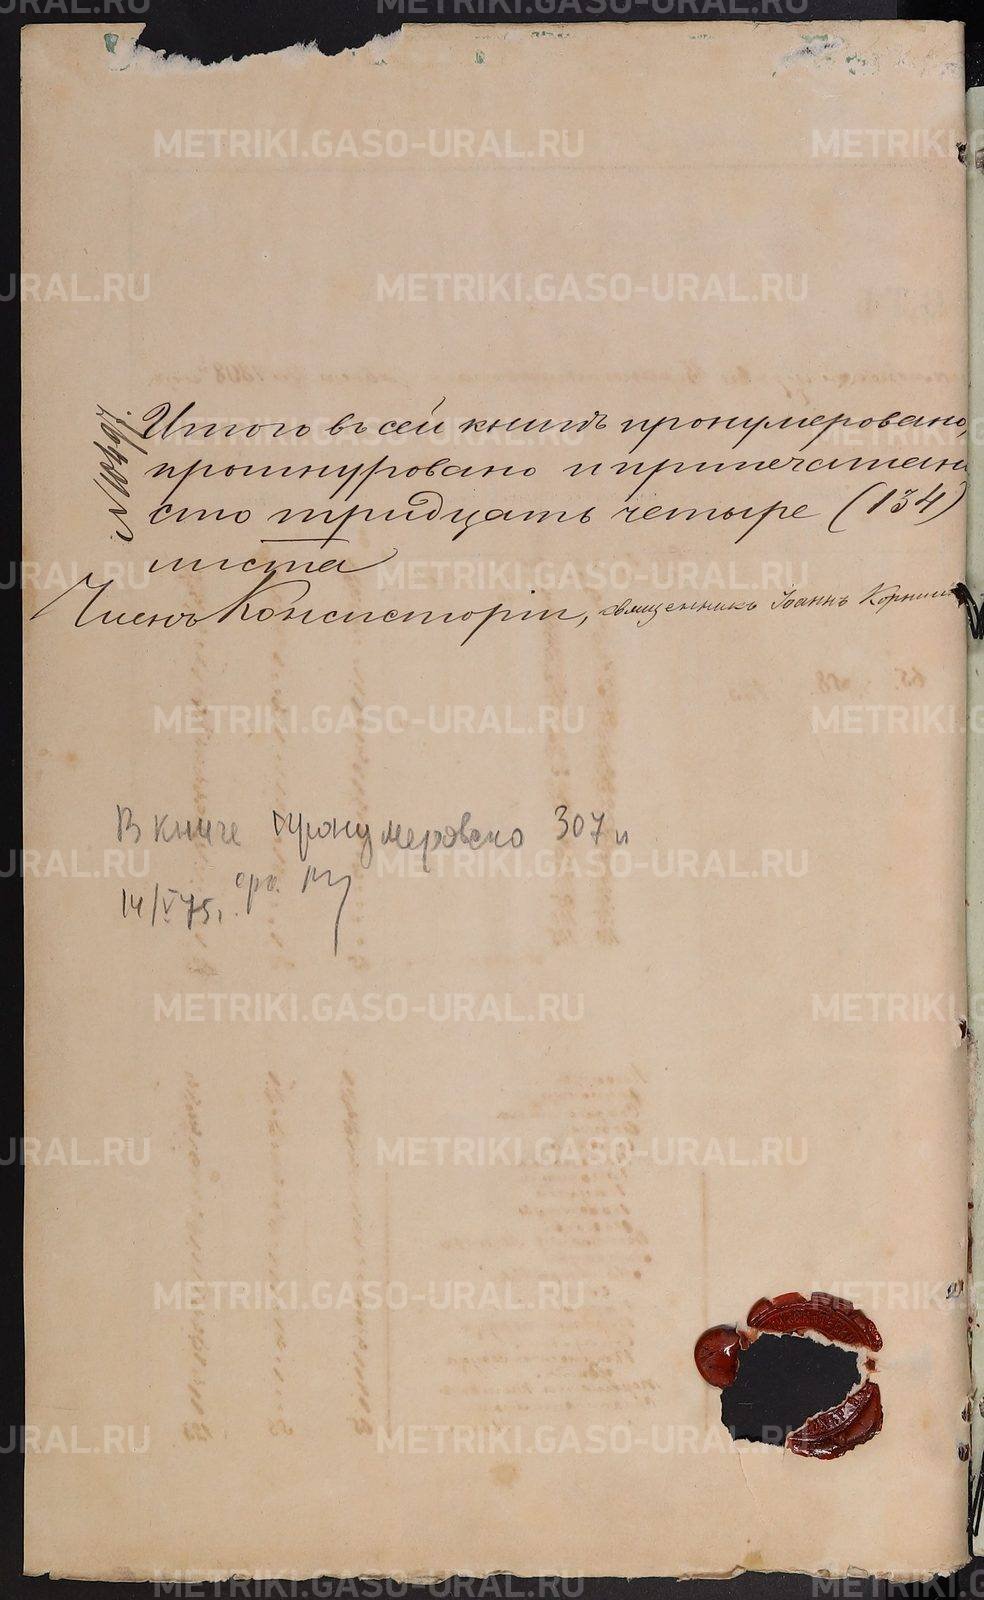 Итого въ сей книгѣ пронумеровано,
прошнуровано и припечатано
сто тридцать четыре (134)
листа
Членъ Консисторіи, священникъ Іоаннъ
В книге пронумеровано 307 л
14/V 75г.
METRIKI.GASO-URAL.RU